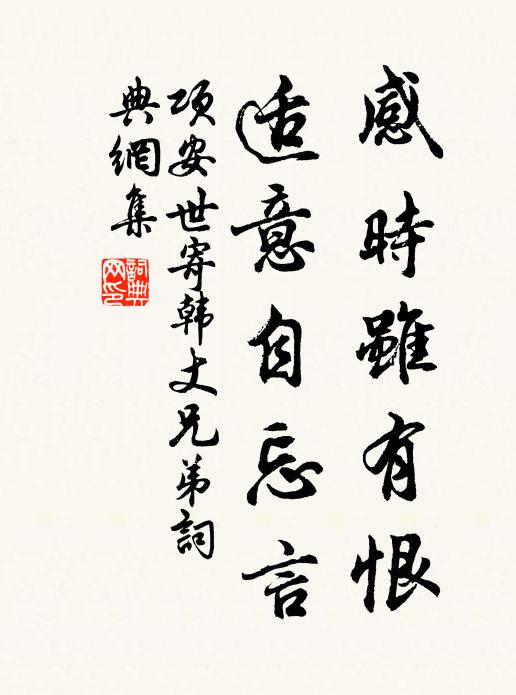 感時雖有恨
适意自忘言
项安世寄韩丈兄弟詞
典網集
詞典
网印